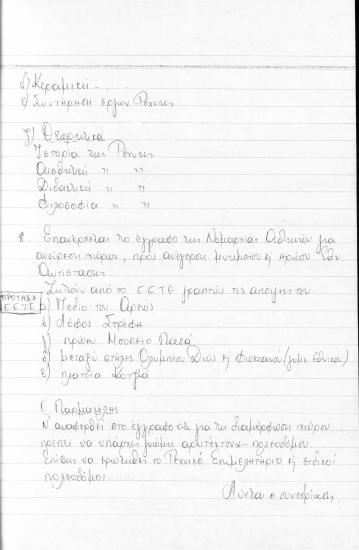 δ) Κεραμική - . . .
ε) Συντήρηση έργων Τέχνης
γ) Θεωρητικά
Ιστορία της Τέχνης
Αισθητική " "
Διδακτική " "
Φιλοσοφία " "
8. Επανέρχεται το έγγραφο της Νομαρχίας Αθηνών για
ανεύρεση χώρου, προς ανέγερση μνημείου ή ηρώου Εθν
Αντίστασης.
Ζητούν από το Ε Ε Τ Ε γραπτώς τις απόψεις του
ΠΡΟΤΑΣΗ
Ε.Ε.Τ.Ε.
α) Πεδίο του Άρεως
β) Λόφος Στρέφη
γ) πρώην Μουσείο
δ) μεταξύ στήλης Ολυμπίου Διός ή Φωκιανού (γυμν. Εθνικού)
ε) πλατεία Κοτζιά
Ν' αναφερθεί στο έγγραφο ότι για τη διαμόρφωση χώρου
πρέπει να υπάρχει γνώμη αρχιτέκτονα - πολεοδόμου.
Επίσης να ερωτηθεί το Τεχνικό Επιμελητήριο ή ειδικοί
πολεοδόμοι.
Λύεται η συνεδρίαση.